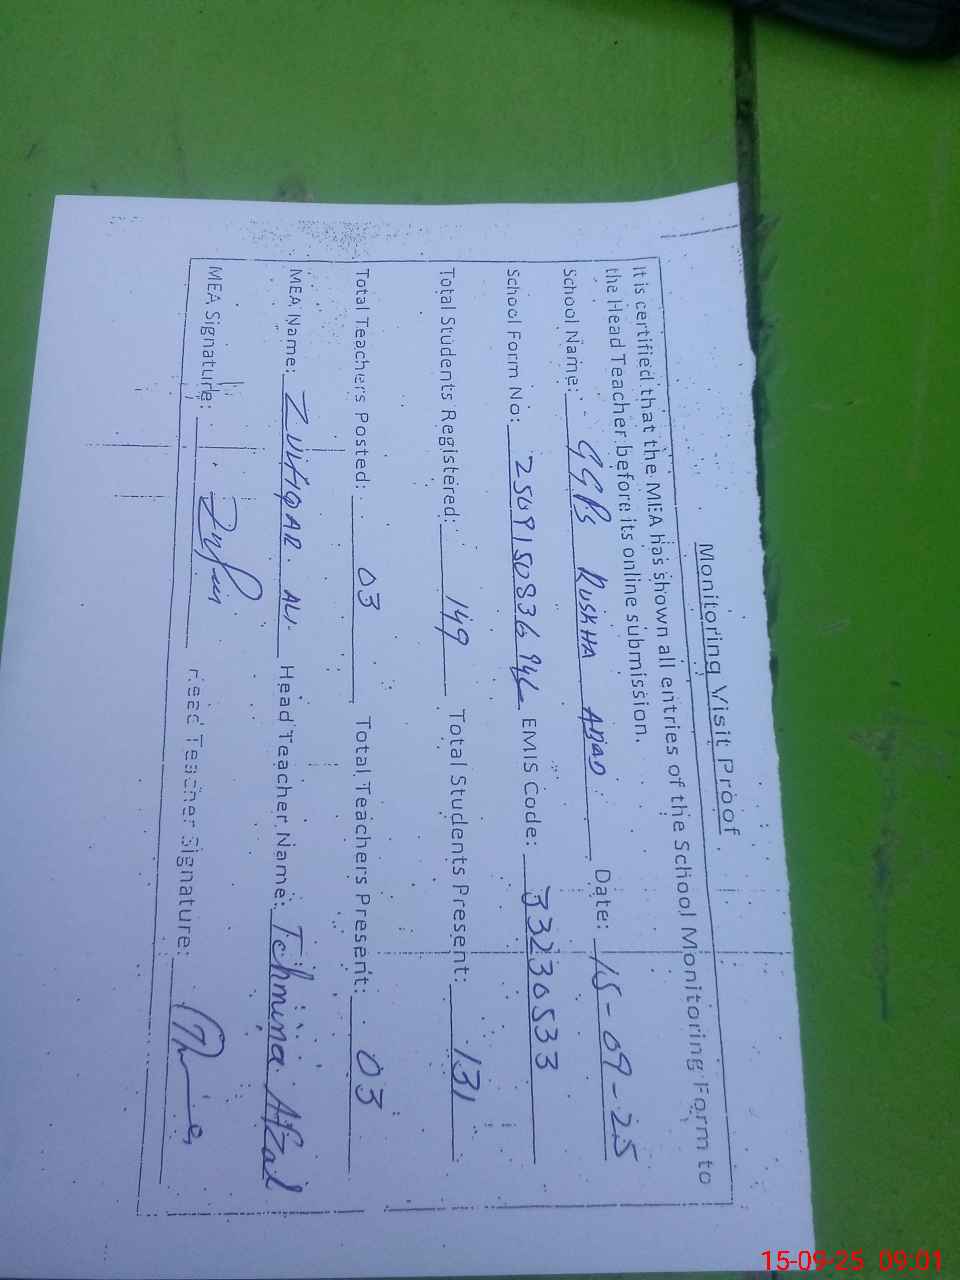 Monitoring Visit Proof
It is certified that the MEA has shown all entries of the School Monitoring Form to
the Head Teacher before its online submission.
School Name: GGPS RUSKHA ABAD Date: 15-09-25
School Form No: EMIS Code: 33230533
Total Students Registered: 149 Total Students Present: 131
Total Teachers Posted: 03 Total Teachers Present: 03
MEA Name: ZULFIQAR ALI Head Teacher Name: Tehmina Afzal
MEA Signature: Head Teacher Signature:
15-09-25 09:01